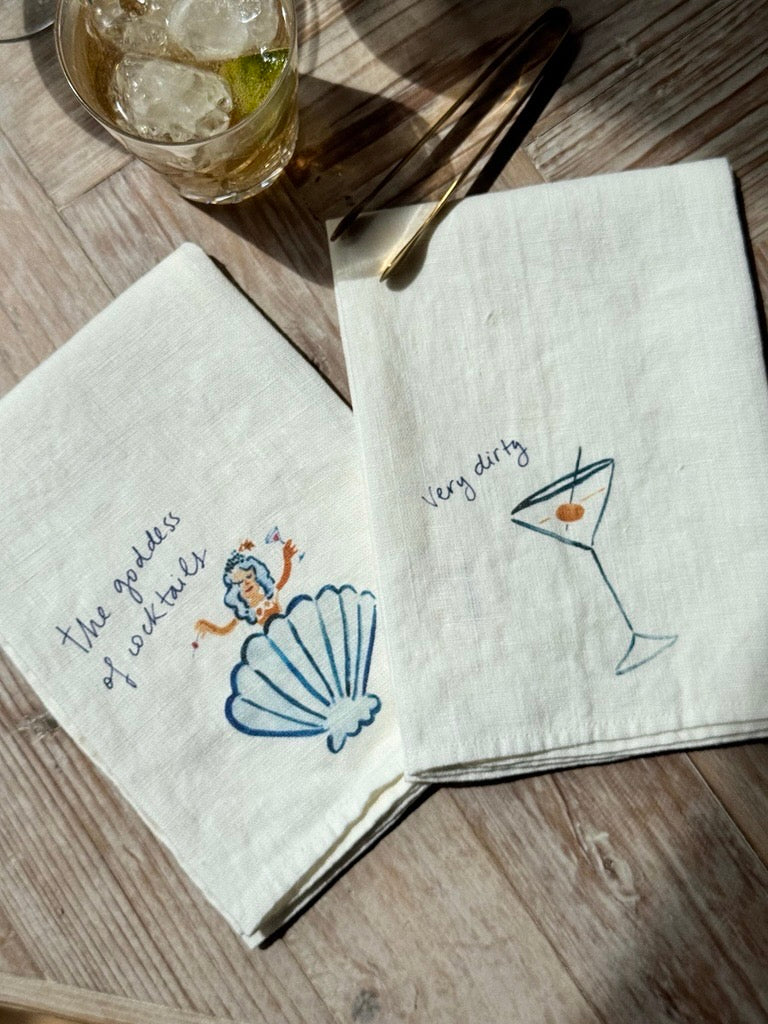 the goddess
of cocktails
very dirty